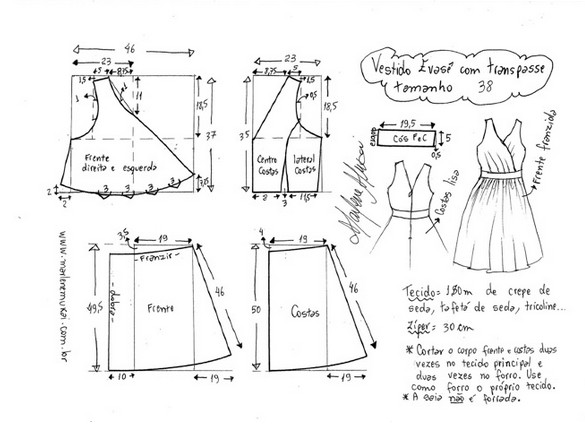 46
23
5
8,75
1,5
1
2
11
18,5
37
Frente
direita e esquerda
2
2
3
3
3
23
8,75
5
1,5
0,5
18,5
35
Centro
Costas
lateral
Costas
3
Vestido Evasê com transpasse
tamanho 38
19,5
Cós F e C
5
0,5
Costas lisa
Frente franzida
Marlene Mukai
www.marlenemukai.com.br
3,5
19
- Franzir -
49,5
- dobra -
Frente
46
10
19
4
19
50
Costas
46
19
Tecido = 1,80m de crepe de
seda, tafetá de seda, tricoline...
Zíper = 30 cm
* Cortar o corpo frente e costas duas
vezes no tecido principal e
duas vezes no forro. Use
como forro o próprio tecido.
* A saia não é forrada.